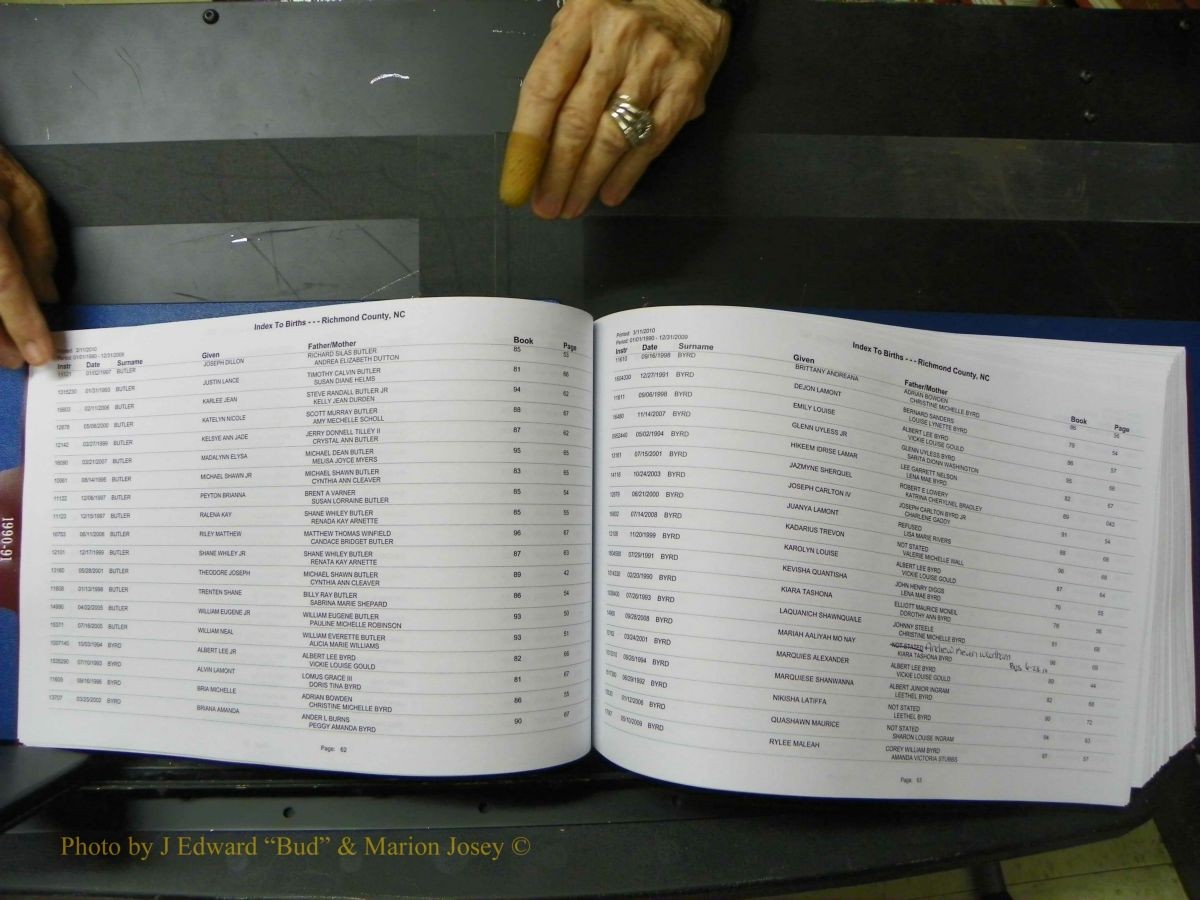 Index To Births - - - Richmond County, NC
Printed: 3/11/2010
Period: 01/01/1990 - 12/31/2009
Instr Date Surname Given Father/Mother Book Page
01/02/1997 BUTLER JOSEPH DILLON RICHARD SILAS BUTLER 85 53
ANDREA ELIZABETH DUTTON
1315230 01/31/1993 BUTLER JUSTIN LANCE TIMOTHY CALVIN BUTLER 81 66
SUSAN DIANE HELMS
15603 02/11/2006 BUTLER KARLEE JEAN STEVE RANDALL BUTLER JR 94 62
KELLY JEAN DURDEN
12678 05/06/2000 BUTLER KATELYN NICOLE SCOTT MURRAY BUTLER 88 67
AMY MECHELLE SCHOLL
12142 03/27/1999 BUTLER KELSYE ANN JADE JERRY DONNELL TILLEY II 87 62
CRYSTAL ANN BUTLER
16090 03/21/2007 BUTLER MADALYNN ELYSA MICHAEL DEAN BUTLER 95 65
MELISA JOYCE MYERS
10061 08/14/1995 BUTLER MICHAEL SHAWN JR MICHAEL SHAWN BUTLER 83 65
CYNTHIA ANN CLEAVER
11122 12/06/1997 BUTLER PEYTON BRIANNA BRENT A VARNER 85 54
SUSAN LORRAINE BUTLER
11123 12/15/1997 BUTLER RALENA KAY SHANE WHILEY BUTLER 85 55
RENADA KAY ARNETTE
16753 08/11/2008 BUTLER RILEY MATTHEW MATTHEW THOMAS WINFIELD 96 67
CANDACE BRIDGET BUTLER
12101 12/17/1999 BUTLER SHANE WHILEY JR SHANE WHILEY BUTLER 87 63
RENATA KAY ARNETTE
13160 05/28/2001 BUTLER THEODORE JOSEPH MICHAEL SHAWN BUTLER 89 42
CYNTHIA ANN CLEAVER
11608 01/13/1998 BUTLER TRENTEN SHANE BILLY RAY BUTLER 86 54
SABRINA MARIE SHEPARD
14990 04/02/2005 BUTLER WILLIAM EUGENE JR WILLIAM EUGENE BUTLER 93 50
PAULINE MICHELLE ROBINSON
15371 07/16/2005 BUTLER WILLIAM NEAL WILLIAM EVERETTE BUTLER 93 51
ALICIA MARIE WILLIAMS
BYRD ALBERT LEE JR ALBERT LEE BYRD 82 66
VICKIE LOUISE GOULD
07/10/1993 BYRD ALVIN LAMONT LOMUS GRACE III 81 67
DORIS TINA BYRD
11609 09/16/1998 BYRD BRIA MICHELLE ADRIAN BOWDEN 86 55
CHRISTINE MICHELLE BYRD
13707 03/25/2002 BYRD BRIANA AMANDA ANDER L BURNS 90 67
PEGGY AMANDA BYRD
Page: 62
Index To Births - - - Richmond County, NC
Printed: 3/11/2010
Period: 01/01/1990 - 12/31/2009
Instr Date Surname Given Father/Mother Book Page
11610 09/16/1998 BYRD BRITTANY ANDREANA ADRIAN BOWDEN 86 56
CHRISTINE MICHELLE BYRD
12/27/1991 BYRD DEJON LAMONT BERNARD SANDERS 79 54
LOUISE LYNETTE BYRD
11611 09/06/1998 BYRD EMILY LOUISE ALBERT LEE BYRD 86 57
VICKIE LOUISE GOULD
16490 11/14/2007 BYRD GLENN UYLESS JR GLENN UYLESS BYRD 95
SARITA DIONN WASHINGTON
0952440 05/02/1994 BYRD HIKEEM IDRISE LAMAR LEE GARRETT NELSON 82 67
LENA MAE BYRD
07/15/2001 BYRD JAZMYNE SHERQUEL ROBERT E LOWERY 89 043
KATRINA CHERYLNEL BRADLEY
14116 10/24/2003 BYRD JOSEPH CARLTON IV JOSEPH CARLTON BYRD JR 91 54
CHARLENE GADDY
06/21/2000 BYRD JUANYA LAMONT REFUSED
LISA MARIE RIVERS
07/14/2008 BYRD KADARIUS TREVON NOT STATED 96 68
VALERIE MICHELLE WALL
11/20/1999 BYRD KAROLYN LOUISE ALBERT LEE BYRD 87 64
VICKIE LOUISE GOULD
07/29/1991 BYRD KEVISHA QUANTISHA JOHN HENRY DIGGS 79 55
LENA MAE BYRD
02/20/1990 BYRD KIARA TASHONA ELLIOTT MAURICE MCNEIL 78
DOROTHY ANN BYRD
07/26/1993 BYRD LAQUANICH SHAWNQUAILE JOHNNY STEELE 81 68
CHRISTINE MICHELLE BYRD
09/26/2008 BYRD MARIAH AALIYAH MO NAY NOT STATED Andrew 96 69
KIARA TASHONA BYRD
03/24/2001 BYRD MARQUIES ALEXANDER ALBERT LEE BYRD 89 44
VICKIE LOUISE GOULD
09/26/1994 BYRD MARQUIESE SHANWANNA ALBERT JUNIOR INGRAM 82 68
LEETHEL BYRD
09/29/1992 BYRD NIKISHA LATIFFA NOT STATED 80 72
LEETHEL BYRD
BYRD QUASHAWN MAURICE NOT STATED 94 63
SHARON LOUISE INGRAM
BYRD RYLEE MALEAH COREY WILLIAM BYRD 97 57
AMANDA VICTORIA STUBBS
Page: 63
1990-91
Photo by J Edward “Bud” & Marion Josey ©